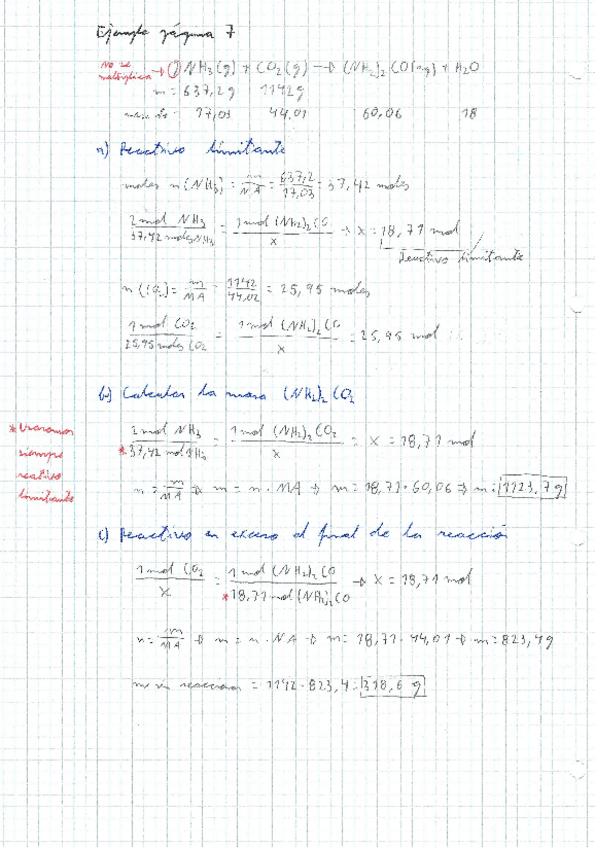 Ejemplo página 7
No se multiplica → 2 NH3(g) + CO2(g) → (NH2)2 CO(aq) + H2O
m = 637,2g 1142g
17,03 44,01 60,06 18
a) Reactivo limitante
moles n(NH3) = m/MA = 637,2/17,03 = 37,42 moles
2 mol NH3 / 37,42 moles NH3 = 1 mol (NH2)2 CO / x → x = 18,71 mol
Reactivo limitante
n(CO2) = m/MA = 1142/44,01 = 25,95 moles
1 mol CO2 / 25,95 moles CO2 = 1 mol (NH2)2 CO / x = 25,95 mol
b) Calcular la masa (NH2)2 CO2
* Usaremos siempre reactivo limitante
2 mol NH3 / *37,42 mol NH3 = 1 mol (NH2)2 CO2 / x = x = 18,71 mol
n = m/MA → m = n · MA → m = 18,71 · 60,06 → m = 1123,7 g
c) Reactivo en exceso al final de la reacción
1 mol CO2 / x = 1 mol (NH2)2 CO / *18,71 mol (NH2)2 CO → x = 18,71 mol
n = m/MA → m = n · MA → m = 18,71 · 44,01 → m = 823,4g
m sin reaccionar = 1142 - 823,4 = 318,6 g